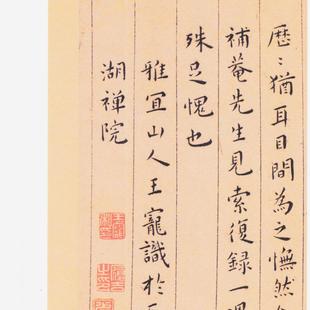 歷〻猶耳目間為之憮然
補菴先生見索復錄一
殊足愧也
雅宜山人王寵識於
湖禪院